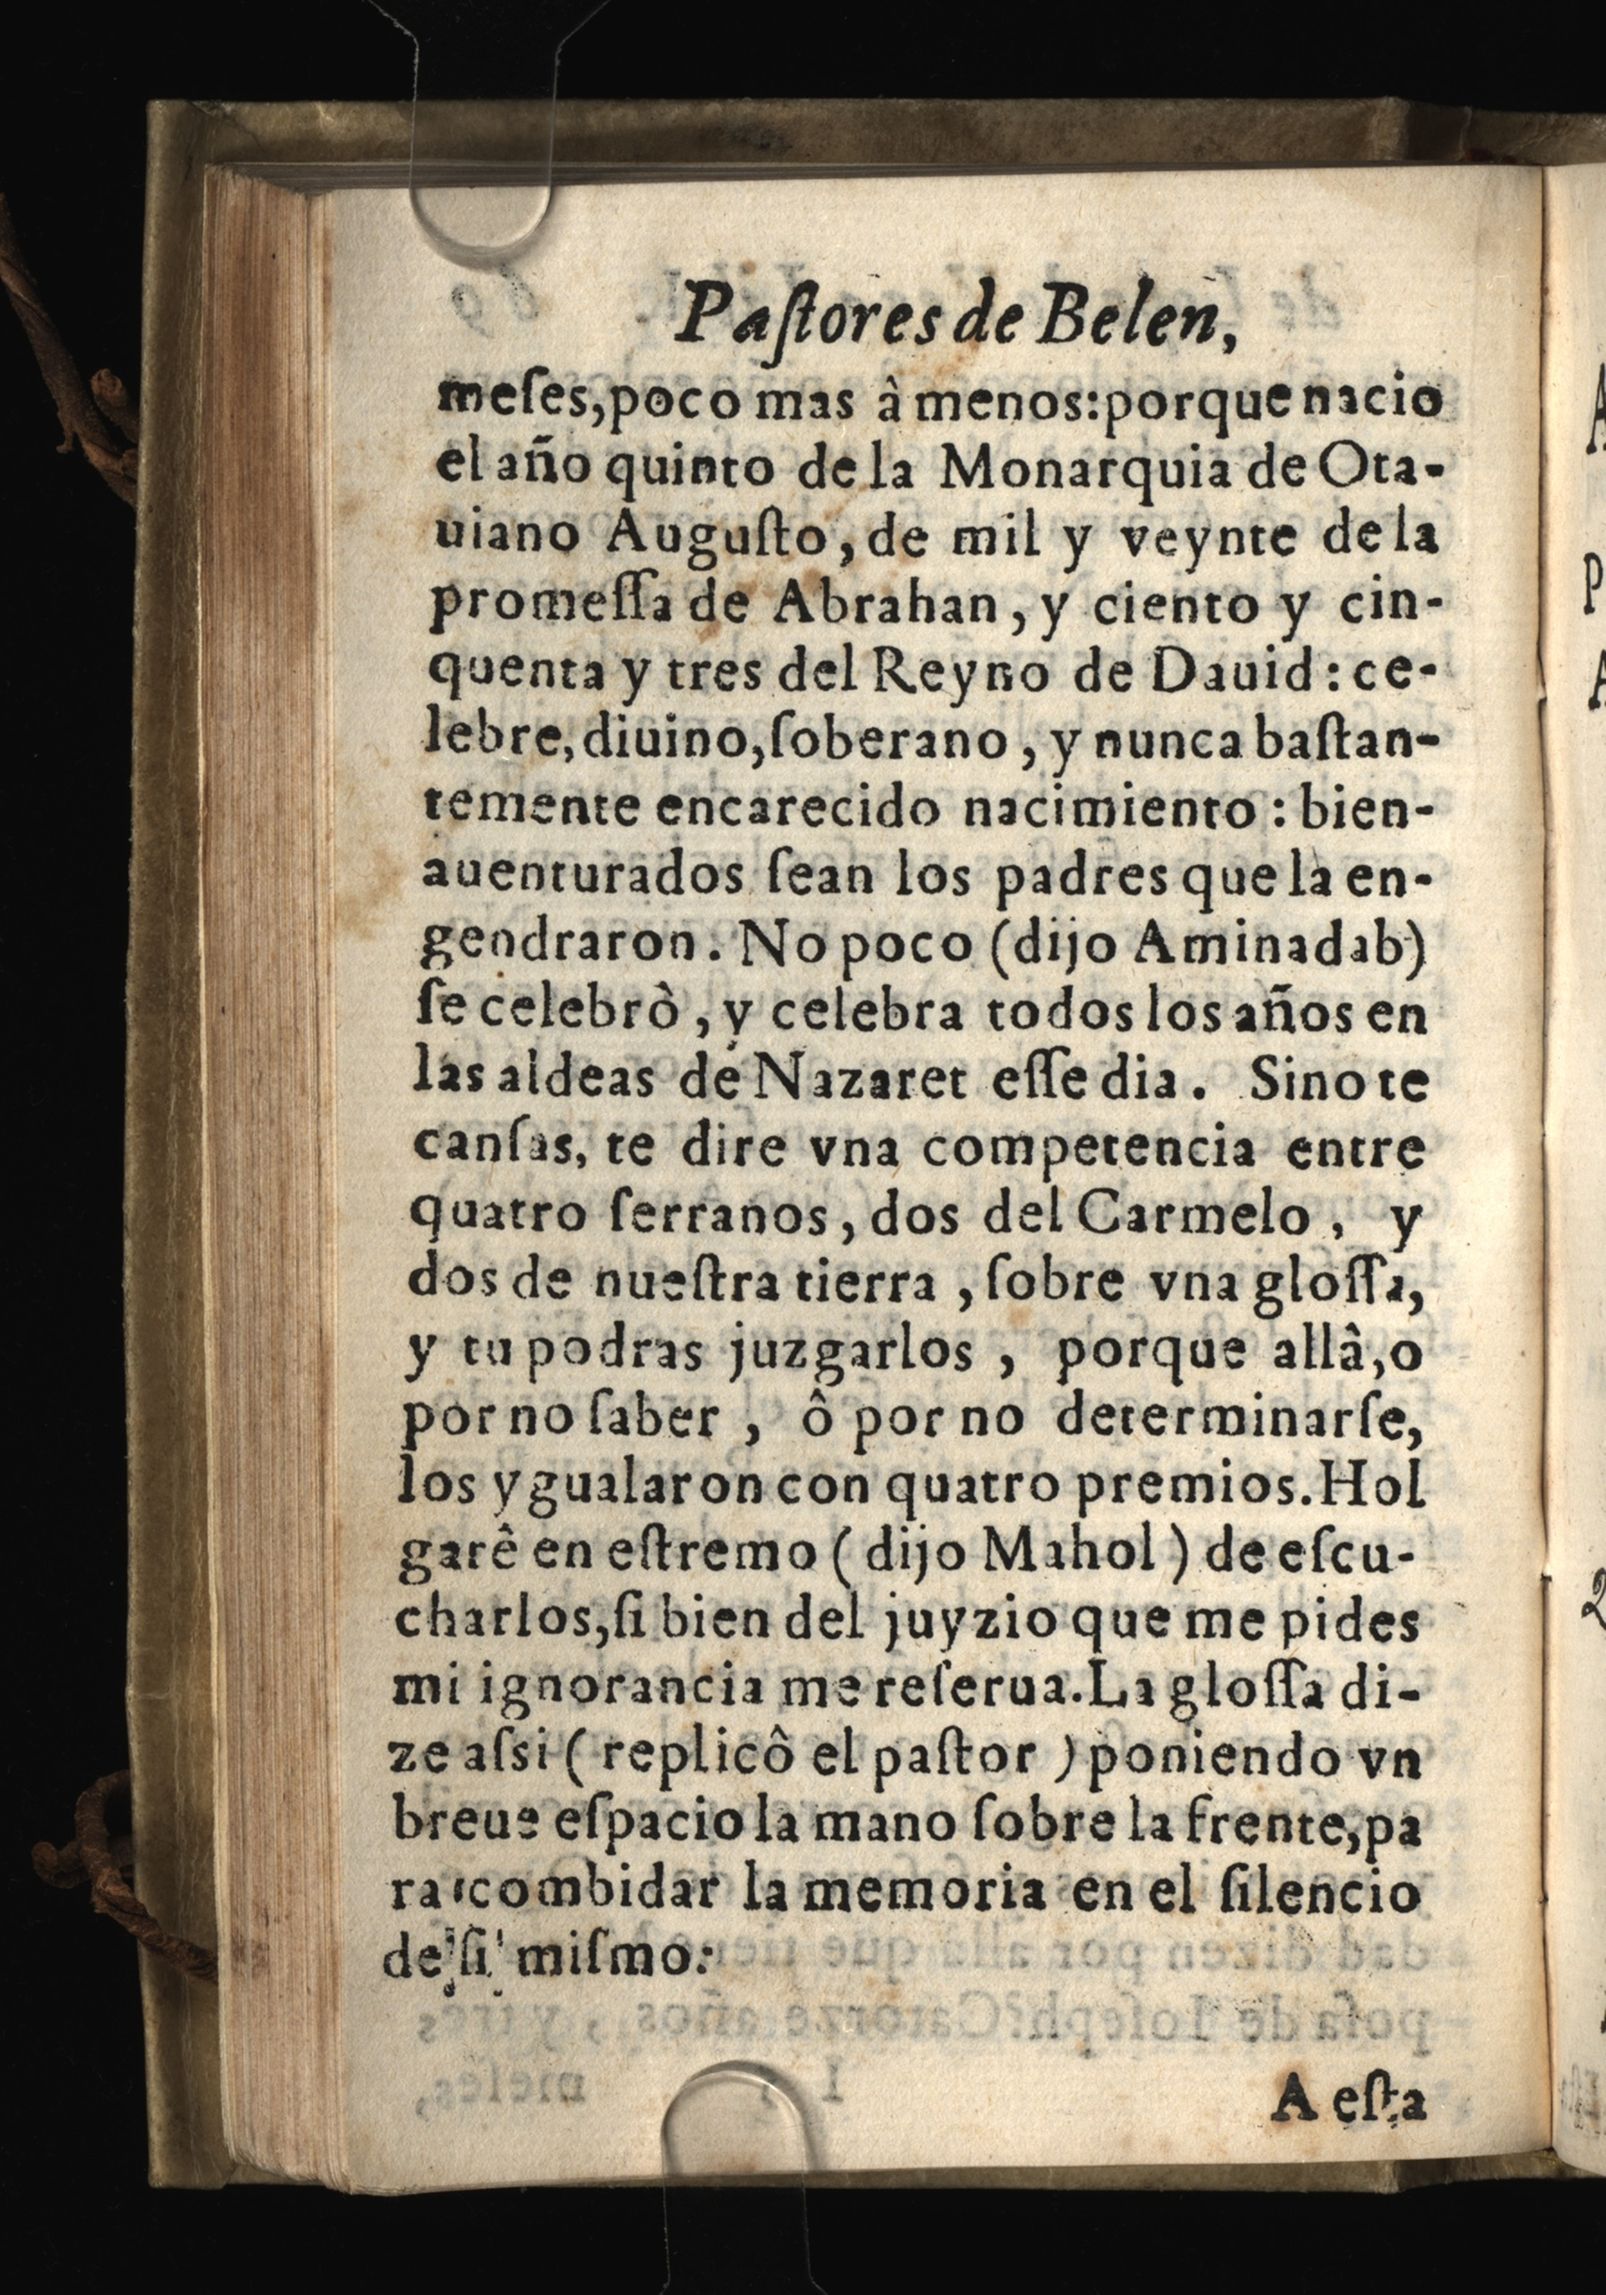 Paſtores de Belen,
meſes, poco mas â menos: porque nacio
el año quinto de la Monarquia de Ota-
uiano Auguſto, de mil y veynte de la
promeſſa de Abrahan, y ciento y cin-
quenta y tres del Reyno de Dauid: ce-
lebre, diuino, ſoberano, y nunca baſtan-
temente encarecido nacimiento: bien-
auenturados ſean los padres que la en-
gendraron. No poco (dijo Aminadab)
ſe celebrò, y celebra todos los años en
las aldeas de Nazaret eſſe dia. Sino te
canſas, te dire vna competencia entre
quatro ſerranos, dos del Carmelo, y
dos de nueſtra tierra, ſobre vna gloſſa,
y tu podras juzgarlos, porque allâ, o
por no ſaber, ô por no determinarſe,
los ygualaron con quatro premios. Hol
garê en eſtremo (dijo Mahol) de eſcu-
charlos, ſi bien del juyzio que me pides
mi ignorancia me reſerua. La gloſſa di-
ze aſsi (replicô el paſtor) poniendo vn
breue eſpacio la mano ſobre la frente, pa
ra combidar la memoria en el ſilencio
de ſi miſmo:
A eſta